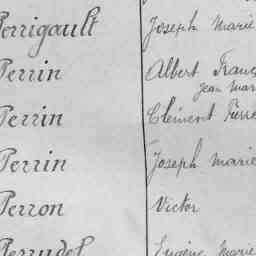 Perrigault Joseph Marie
Perrin Albert Franç
Jean Mar
Perrin Clément Pierre
Perrin Joseph Marie
Perron Victor
Perrudel Eugène Marie